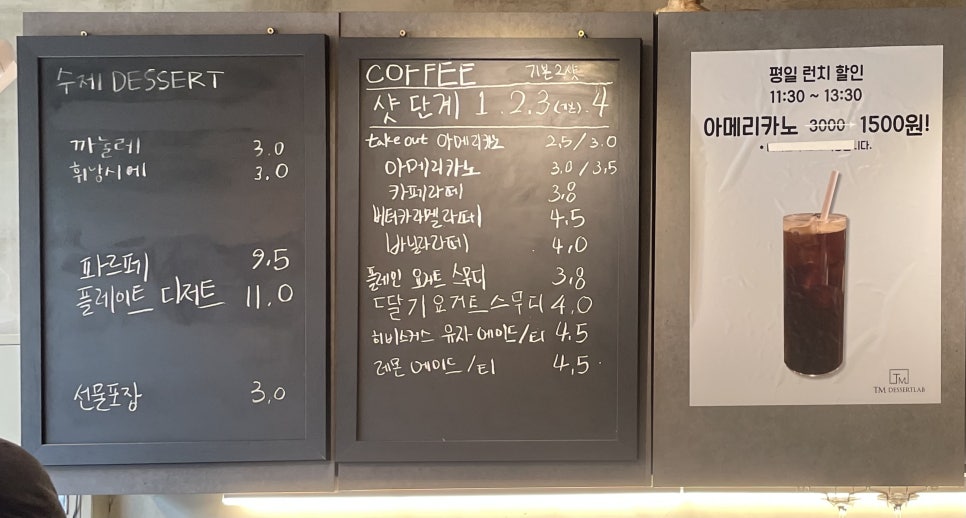 수제 DESSERT
까눌레 3.0
휘낭시에 3.0
파르페 9.5
플레이트 디저트 11.0
선물포장 3.0
COFFEE 기본2샷
샷 단계 1.2.3(기본).4
take out 아메리카노 2.5/3.0
아메리카노 3.0/3.5
카페라떼 3.8
버터카라멜라떼 4.5
바닐라라떼 4.0
플레인 요거트 스무디 3.8
딸기요거트스무디 4.0
히비스커스 유자에이드/티 4.5
레몬에이드/티 4.5
평일 런치 할인
11:30 ~ 13:30
아메리카노 3000 1500원!
TM
TM DESSERTLAB